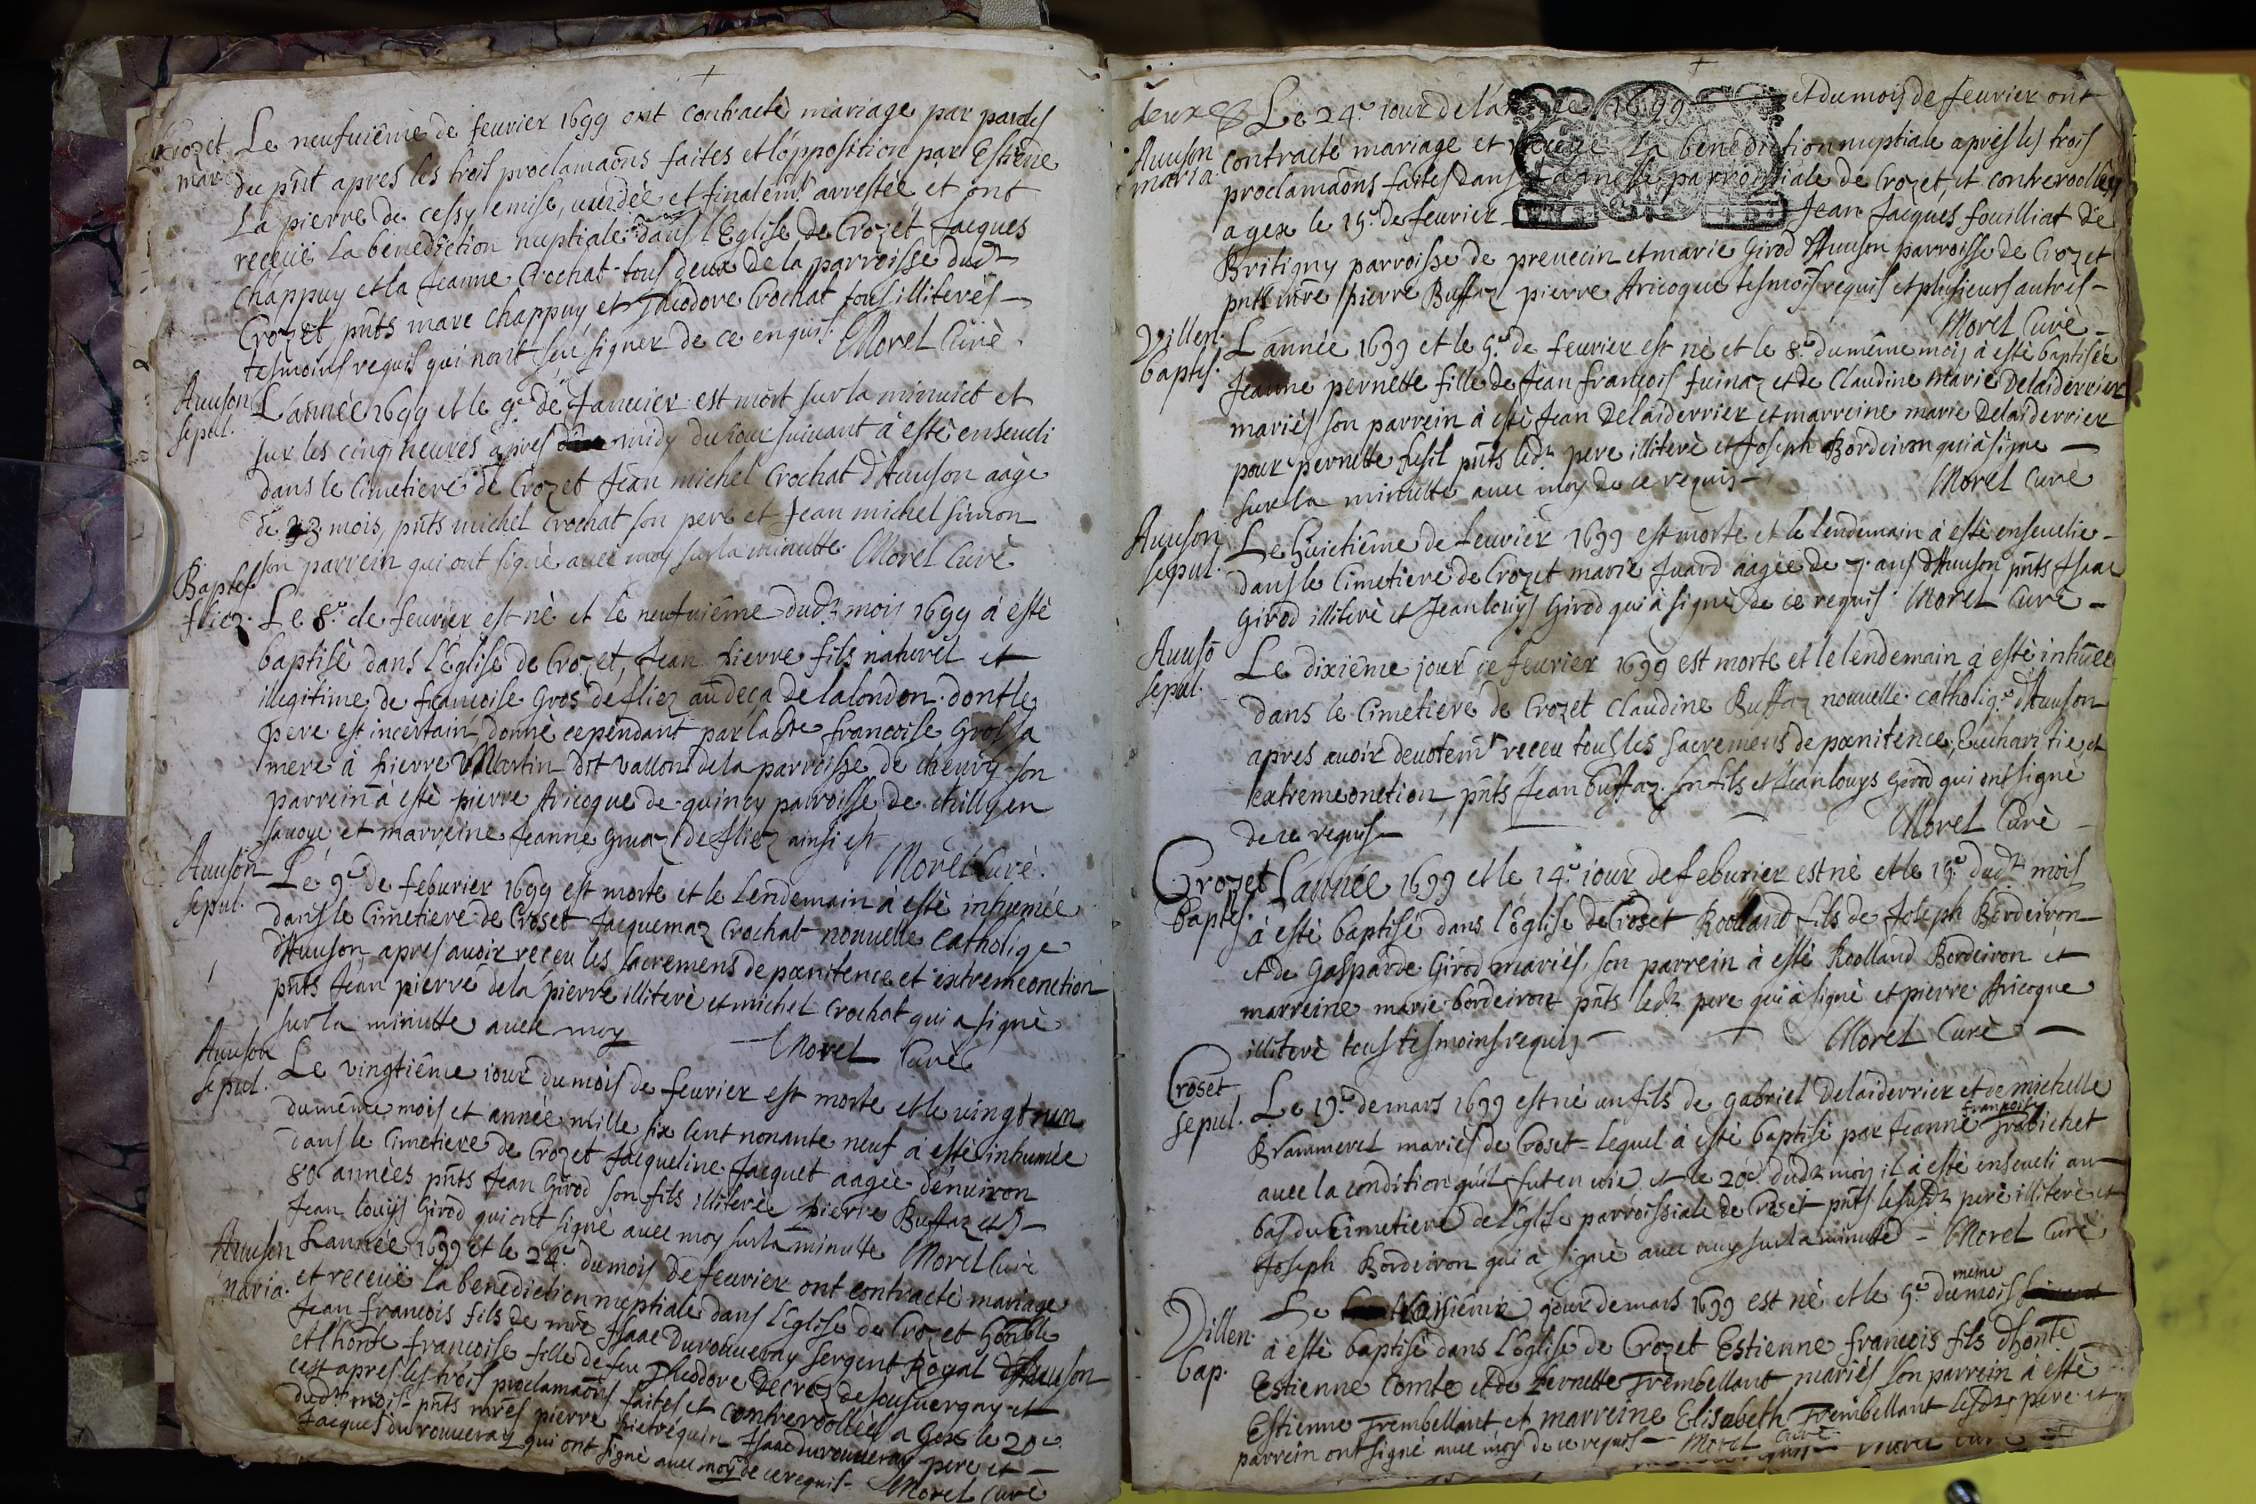 Crozet
mar.
Le neufuième de feurier 1699 ont contractè mariage par pardes
du pñt apres les trois proclamaõns faites et l'opposition par Estiene
La pierre de cessy emise, uuidèe et finalemt arrestèe, et ont
receüe La benediction nuptiale dans l'Eglise de Crozet Jacques
Chappuy et la Jeanne Crochat tous deux de la parroisse dudt
Crozet, pñts marc Chappuy et Theodore Crochat tous illiterès
tesmoins requis qui n'ont sçeu signer de ce enquis. Morel Curè
Auuson
sepul.
L'annèe 1699 et le 9e de Januier est mort sur la minuict et
sur les cinq heures apres midy du iour suiuant à estè enseueli
dans le Cimetiere de Crozet Jean michel Crochat d'Auuson aagè
de mois, pñts michel Crochat son pere et Jean michel simon
son parrein qui ont signè auec moy sur la minutte. Morel Curè
Baptes
fliez.
Le 8e de feurier est nè et le neufuième dudt mois 1699 à estè
baptisè dans l'Eglise de Crozet, Jean Pierre fils naturel et
illegitime de francoise Gros de fliez au deça de la london dont le
pere est incertain, donnè cependant par la dte francoise Gros sa
mere à Pierre Martin dit vallon de la parroisse de cheury son
parrein à estè pierre Aricoque de quincy parroisse de chilly en
sauoye et marreine Jeanne Gruaz de fliez ainsi est Morel Curè.
Auuson
sepul.
Le 9e de feburier 1699 est morte et le Lendemain à estè inhumèe
dans le Cimetiere de Croset Jacquemaz Crochat nouuelle Catholiqe
d'Auuson apres auoir receu les sacremens de pœnitence et extremeonction
pñts Jean pierre de la pierre illiterè et michel Crochat qui a signè
sur la minutte auec moy Morel Curè
Auuson
sepul.
Le vingtième iour du mois de feurier est morte et le vingt un
du même mois et annèe mille six cent nonante neuf à estè inhumèe
dans le Cimetiere de Crozet Jacqueline Jacquet aagèe d'enuiron
80 annèes pñts Jean Girod son fils illiterèe pierre Buffaz et
Jean Louys Girod qui ont signè auec moy sur la minutte Morel Curè
Auuson
maria.
L'annèe 1699 et le 24e du mois de feurier ont contractè mariage
et receüe la benediction nuptiale dans l'Eglise de Crozet
Jean francois fils de mre Isaac Durouueray sergent Royal d'Auuson
et francoise fille de feu Theodore Decrez de Sousuergny et
cest apres les trois proclamaõns faites et controrollèes a Gex le 20e
dudt mois pñts mres pierre pietrequin Isaac durouueray pere et
Jacques du rouueray qui ont signè auec moy de ce requis Morel Curè
deux
Auuson
maria.
Le 24e iour de l'annèe 1699 et du mois de feurier ont
contractè mariage et receüe La benediction nuptiale apres les trois
proclamaõns faites dans La messe parroissiale de Crozet, et controrollèes
a gex le 15e de feurier Jean Jacques fouilliat de
Britigny parroisse de preuecin et marie Girod d'Auuson parroisse de Crozet
pierre Buffaz pierre Aricoque tesmoins requis et plusieurs autres
Morel Curè
Villen.
baptes.
L'annèe 1699 et le 5e de feurier est nè et le 8e du même mois à estè baptisèe
Jeanne pernette fille de Jean francois fuinaz et de Claudine marie Delaiderrier
mariès son parrein à estè Jean Delaiderrier et marreine marie Delaiderrier
pour pernette fusil pñts ledt pere illiterè et Joseph Bordeiron qui à signe
sur la minutte auec moy de ce requis Morel Curè
Auuson
sepul.
Le huictième de feurier 1699 est morte et le lendemain à estè enseuelie
dans le Cimetiere de Crozet marie Juard aagèe de 7 ans d'Auuson pñts Isaac
Girod illiterè et Jean louys Girod qui à signè de ce requis Morel Curè
Auusõ
sepul.
Le dixième jour de feurier 1699 est morte et le lendemain à estè inhumèe
dans le Cimetiere de Crozet Claudine Buffaz nouuelle catholiqe d'Auuson
apres auoir deuotemt receu tous les sacremens de pœnitence, Eucharistie et
extremeonction, pñts Jean buffaz son fils et Jean louys Girod qui ont signè
de ce requis Morel Curè
Crozet
Baptes.
L'annèe 1699 et le 14e iour de feburier est nè et le 15e dudt mois
à estè baptisé dans l'Eglise de Croset Roolland fils de Joseph Bordeiron
et de Gasparde Girod mariès, son parrein à estè Roolland Bordeiron et
marreine marie bordeiron pñts ledt pere qui à signè et pierre Aricoque
illiterè tous tesmoins requis Morel Curè
Croset
sepul.
Le 19e de mars 1699 est nè un fils de Gabriel Delaiderrier et de michelle
Brammerel mariès de Croset lequel à estè baptisè par Jeanne françoise Trabichet
auec la condition qu'il fut en vie et le 20e dudt mois il à estè enseueli au
bas du Cimetiere de l'Eglise parroissiale de Croset pñts lesusdt pere illiterè et
Joseph Bordeiron qui à signè auec moy sur la minutte Morel Curè
Villen.
bap.
Le troisième jour de mars 1699 est nè et le 5e du même mois
à estè baptisè dans l'Eglise de Crozet Estienne francois fils d'honte
Estienne Comte et de Pernette Trembellant mariès son parrein à estè
Estienne Trembellant et marreine Elisabeth Trembellant lesdts pere et
parrein ont signe auec moy de ce requis Morel Curè